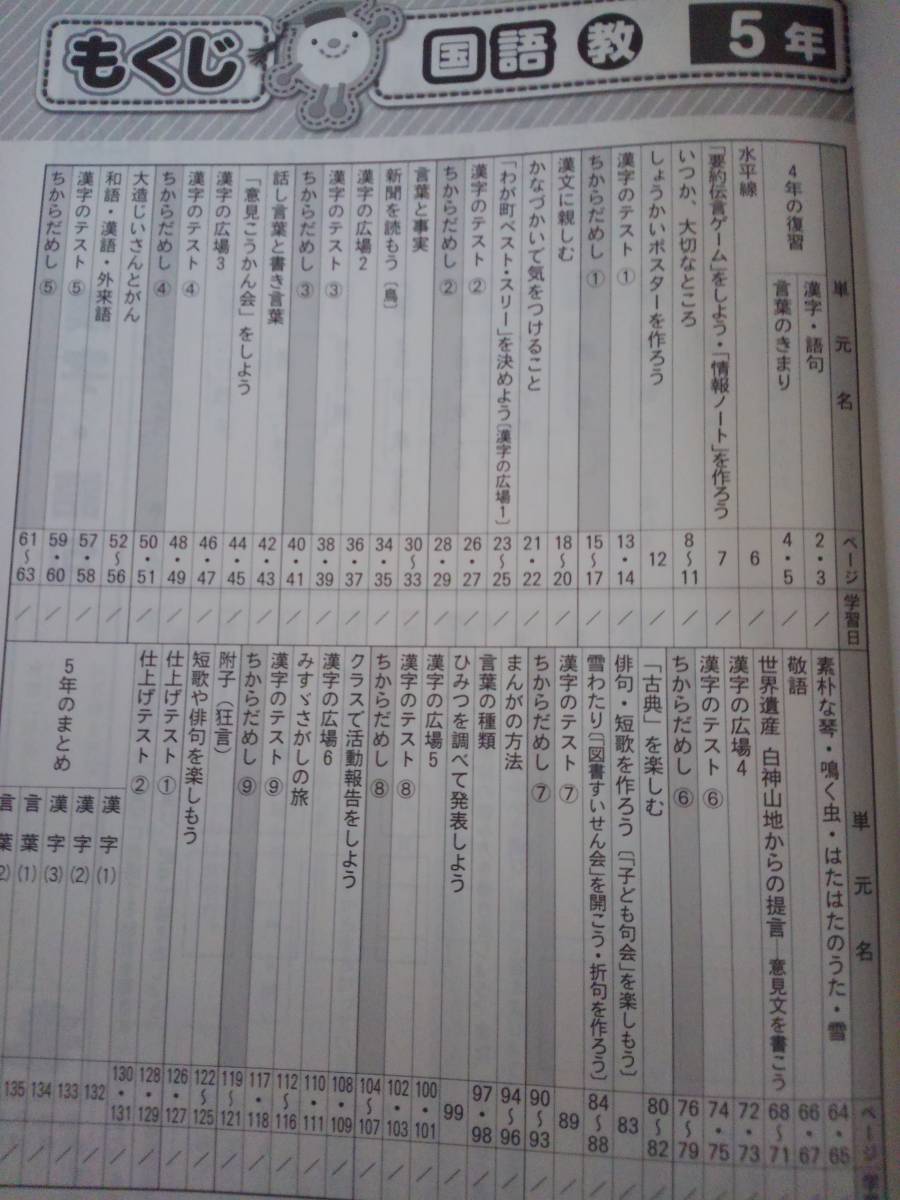 もくじ
国語 教 5年
単元名 ページ 学習日
4年の復習
漢字・語句 2・3 /
言葉のきまり 4・5 /
水平線 6 /
「要約伝言ゲーム」をしよう・「情報ノート」を作ろう 7 /
いつか、大切なところ 8〜11 /
しょうかいポスターを作ろう 12 /
漢字のテスト① 13・14 /
ちからだめし① 15〜17 /
漢文に親しむ 18〜20 /
かなづかいで気をつけること 21・22 /
「わが町ベスト・スリー」を決めよう〔漢字の広場1〕 23〜25 /
漢字のテスト② 26・27 /
ちからだめし② 28・29 /
言葉と事実 30〜33 /
新聞を読もう〔鳥〕 34・35 /
漢字の広場2 36・37 /
漢字のテスト③ 38・39 /
ちからだめし③ 40・41 /
話し言葉と書き言葉 42・43 /
「意見こうかん会」をしよう 44・45 /
漢字の広場3 46・47 /
漢字のテスト④ 48・49 /
ちからだめし④ 50・51 /
大造じいさんとがん 52〜56 /
和語・漢語・外来語 57・58 /
漢字のテスト⑤ 59・60 /
ちからだめし⑤ 61〜63 /
単元名 ページ 学
素朴な琴・鳴く虫・はたはたのうた・雪 64・65 /
敬語 66・67 /
世界遺産 白神山地からの提言 意見文を書こう 68〜71 /
漢字の広場4 72・73 /
漢字のテスト⑥ 74・75 /
ちからだめし⑥ 76〜79 /
「古典」を楽しむ 80〜82 /
俳句・短歌を作ろう〔「子ども句会」を楽しもう〕 83 /
雪わたり〔「図書すいせん会」を開こう・折句を作ろう〕 84〜88 /
漢字のテスト⑦ 89 /
ちからだめし⑦ 90〜93 /
まんがの方法 94〜96 /
言葉の種類 97・98 /
ひみつを調べて発表しよう 99 /
漢字の広場5 100・101 /
漢字のテスト⑧ 102・103 /
ちからだめし⑧ 104〜107 /
クラスで活動報告をしよう 108・109 /
漢字の広場6 110・111 /
みすゞさがしの旅 112〜116 /
漢字のテスト⑨ 117・118 /
ちからだめし⑨ 119〜121 /
附子(狂言) 122〜125 /
短歌や俳句を楽しもう 126・127 /
仕上げテスト① 128・129 /
仕上げテスト② 130・131 /
5年のまとめ
漢字(1) 132 /
漢字(2) 133 /
漢字(3) 134 /
言葉(1) 135 /
言葉(2)